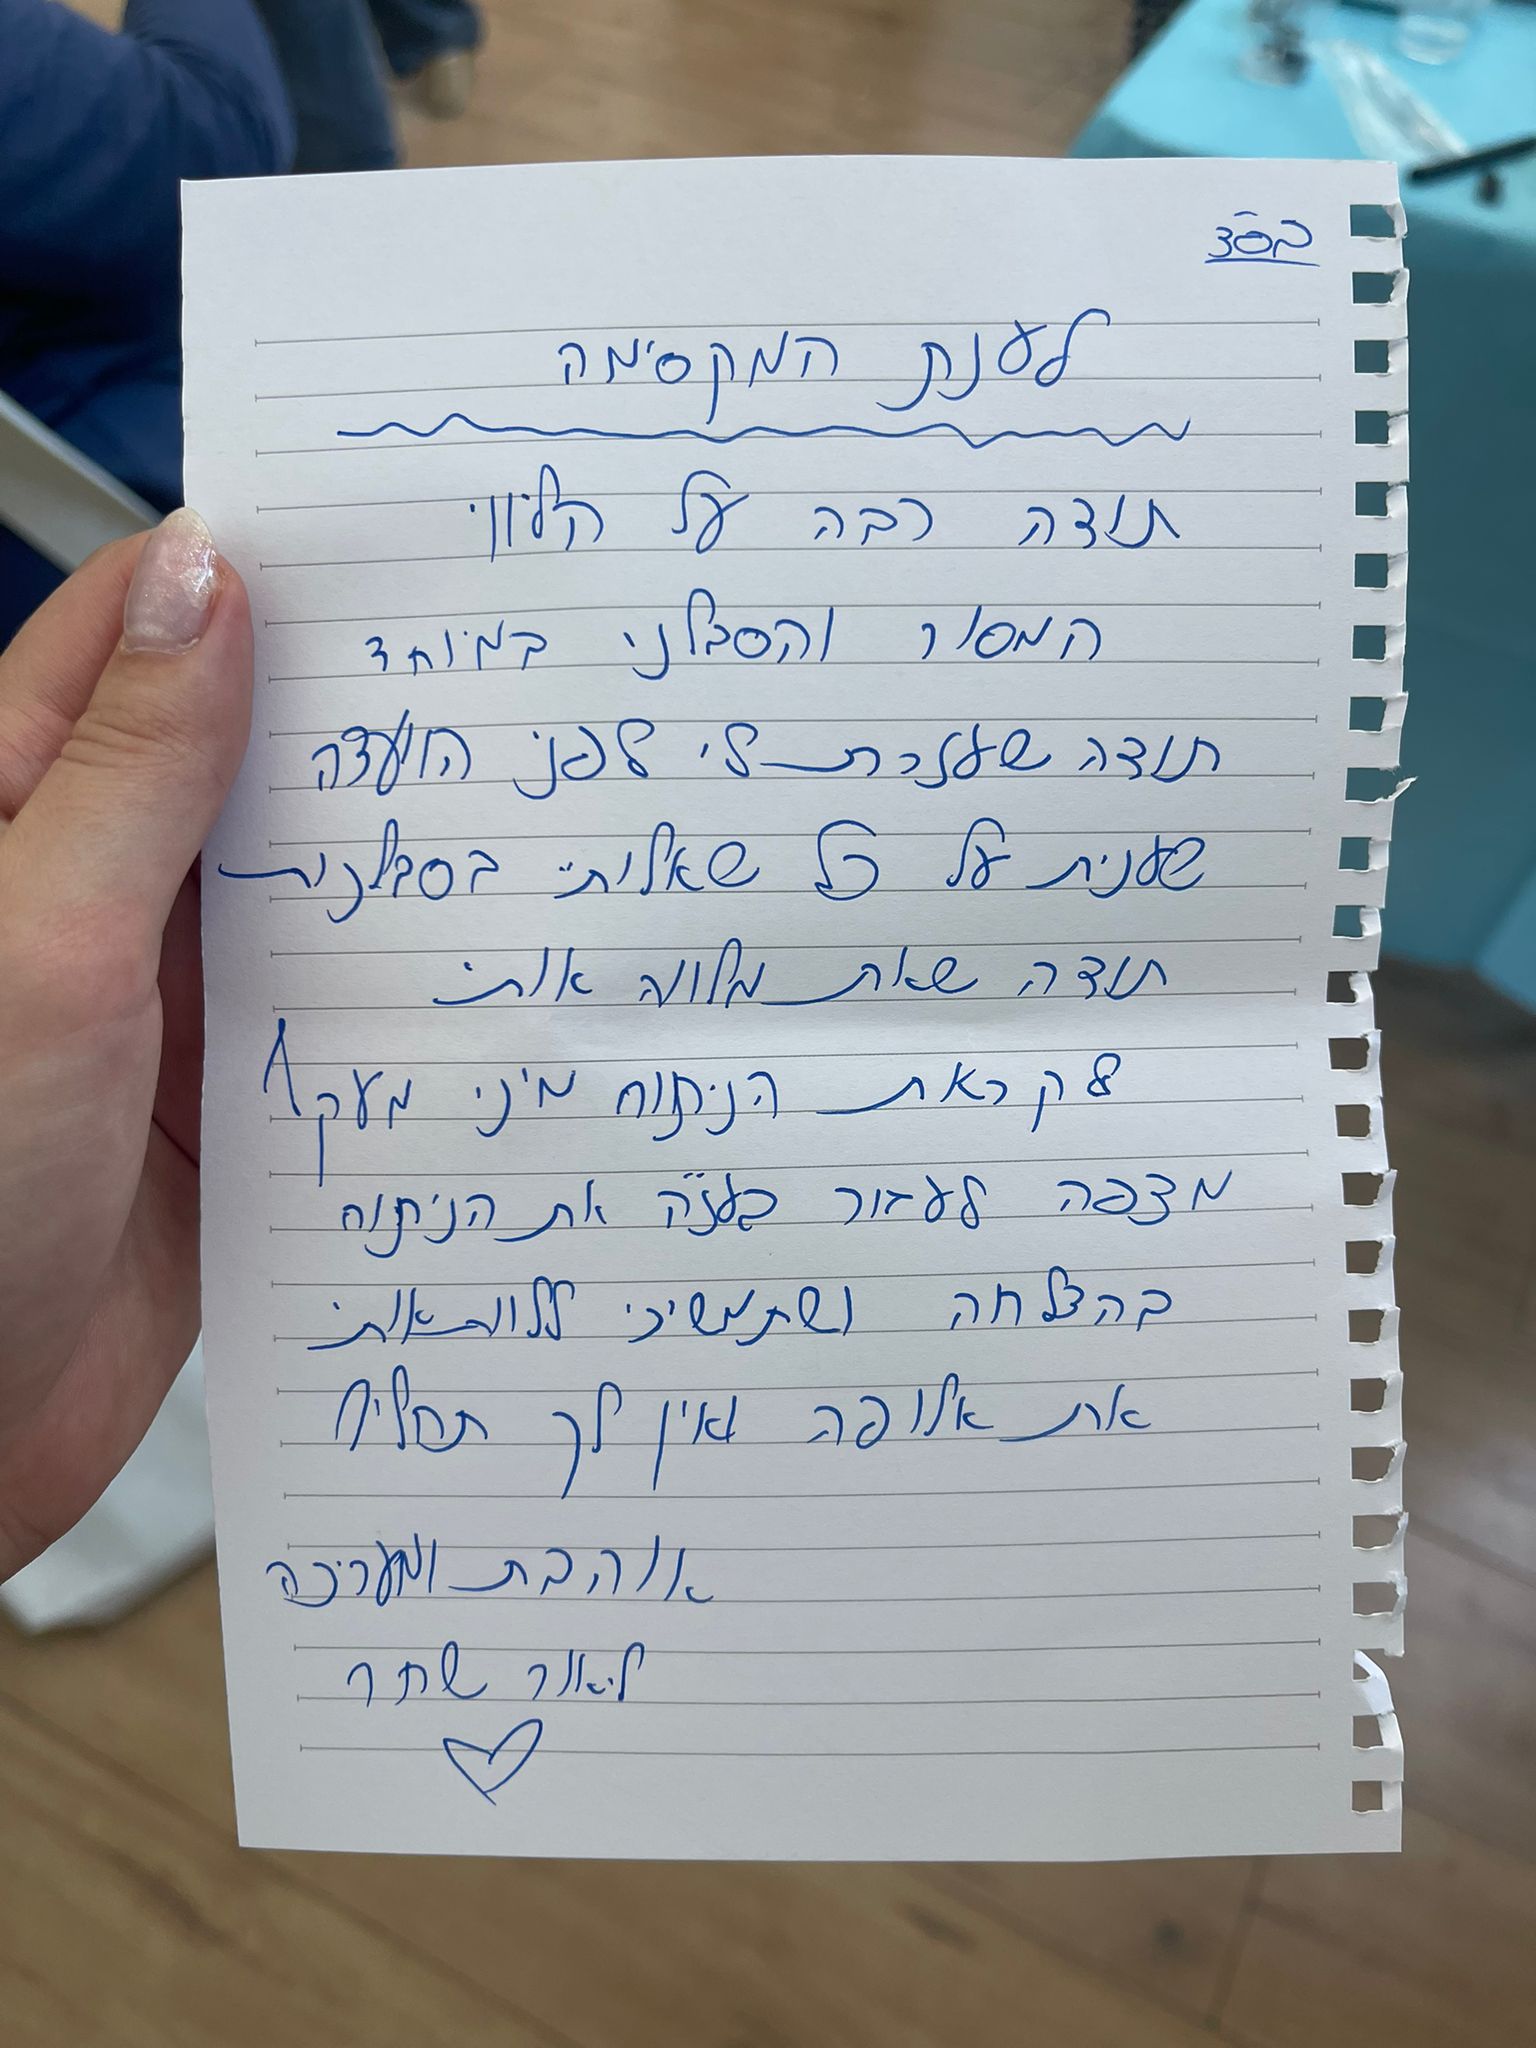 בס"ד
לענת המקסימה
תודה רבה על הליווי
המסור והסבלני במיוחד
תודה שעזרת לי לפני הועדה
שענית על כל שאלותיי בסבלנות
תודה שאת מלווה אותי
לקראת הניתוח מיני מעקף
מצפה לעבור בעז"ה את הניתוח
בהצלחה ושתמשיכי ללוות אותי
את אלופה ואין לך תחליף
אוהבת ומעריכה
ליאור שחר